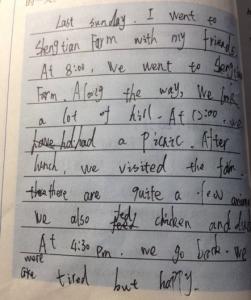 Last sunday. I went to
Shengtian Farm with my friends
At 8:00, We went to Shengtian
Farm. Along the way, We
a lot of hill. At 12:00 we
had a picnic. After
lunch, we visited the farm.
there are quite a few
We also fed chicken and
At 4:30 pm. we go back. We
were
are tired but happy.